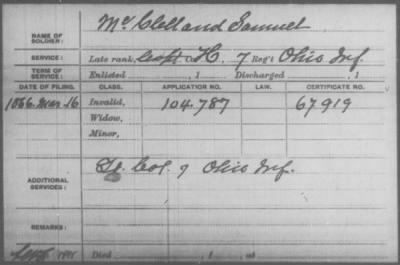 NAME OF SOLDIER: McClelland Samuel
SERVICE: Late rank, Capt Co. H, 7 Reg't Ohio Inf.
TERM OF SERVICE: Enlisted , 1 Discharged , 1
DATE OF FILING. CLASS. APPLICATION NO. LAW. CERTIFICATE NO.
1866 Mar. 16 Invalid, 104.787 67919
Widow,
Minor,
ADDITIONAL SERVICES: Lt. Col. 7 Ohio Inf.
REMARKS:
Died , 1 , at